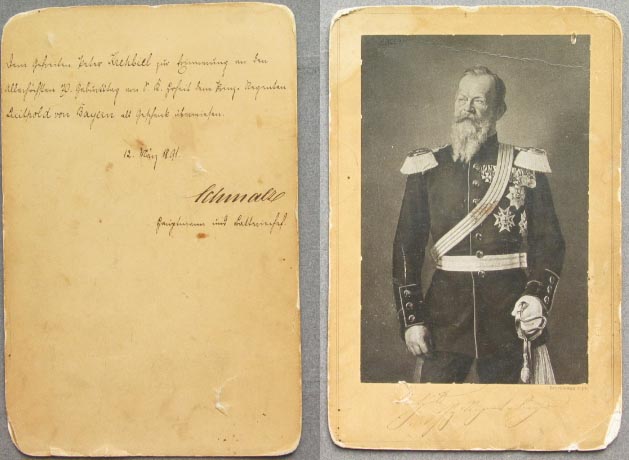 Dem Gefreiten Peter Krehbiel zur Erinnerung an den
Allerhöchsten 70. Geburtstag von S. K. Hoheit dem Prinz-Regenten
Luitpold von Bayern als Geschenk überwiesen.
12. März 1891.
Schmalz
Hauptmann und Batteriechef.